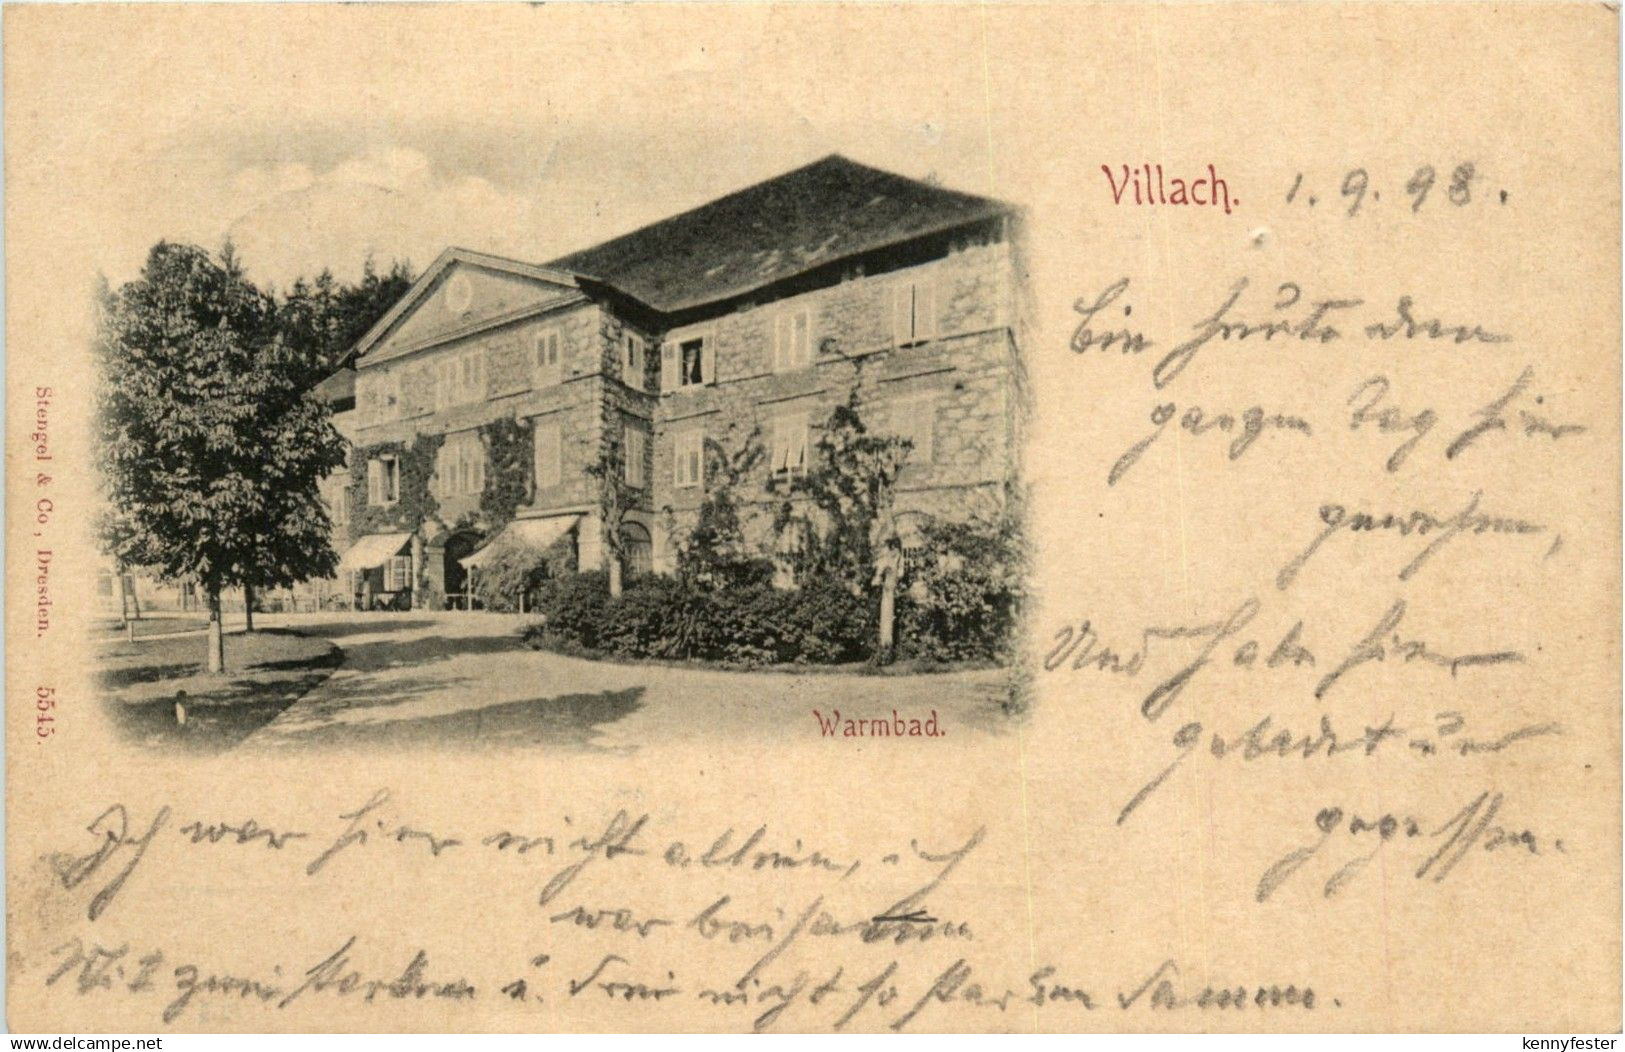 Villach. 1. 9. 98.
Bin heute den
ganzen Tag hier
gewesen,
Und habe hier
gebadet und
gegessen.
Warmbad.
Stengel & Co, Dresden. 5545.
Ich war hier nicht allein, ich
war beisammen
Mit zwei starken u. drei nicht so starken Damen.
www.delcampe.net
kennyfester